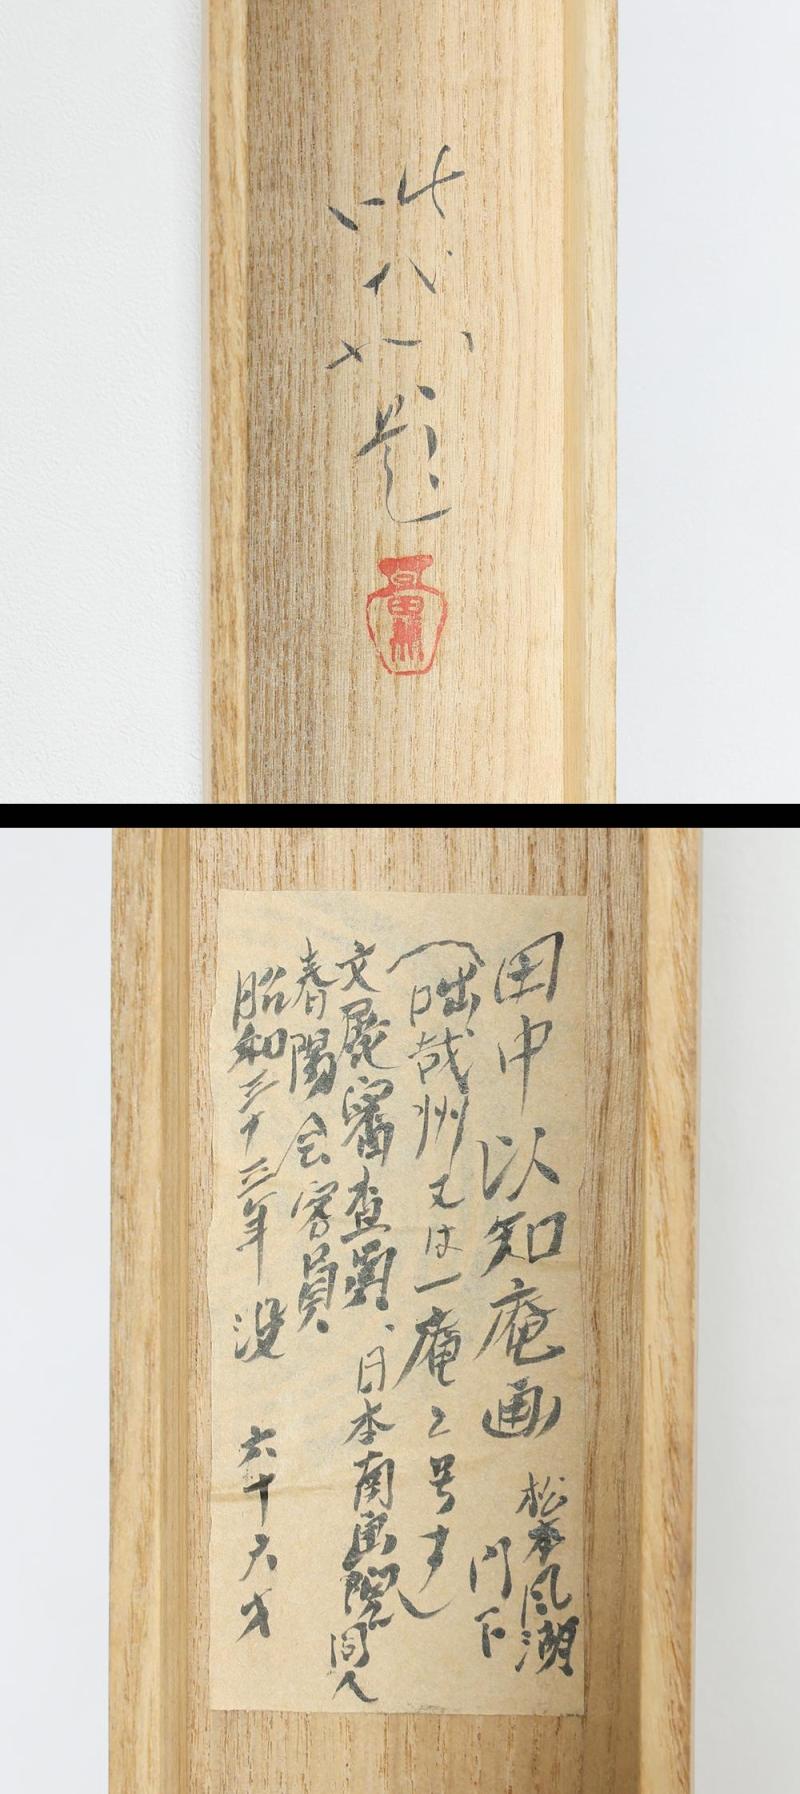 題
田中以知庵画 松本凮湖
門下
(咄哉州又は一庵と号す)
文展審査員、日本南画院同人
春陽会客員
昭和三十三年没 六十六才